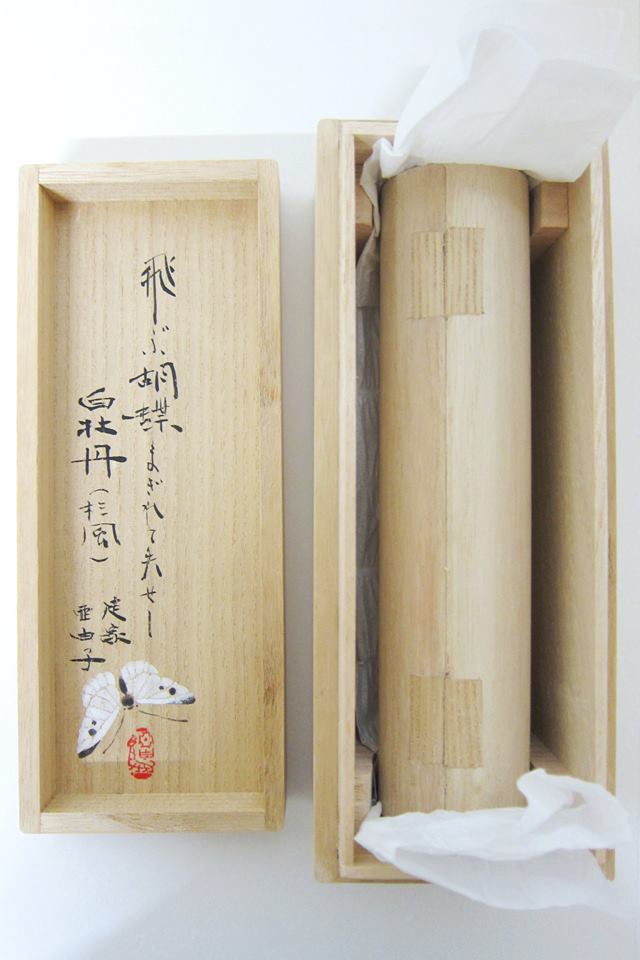 飛ぶ胡蝶まぎれて失せし
白牡丹(杉風)
定家
亜由子